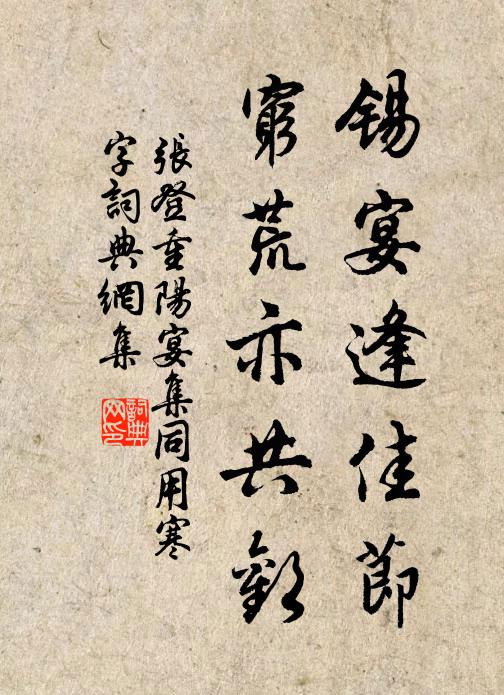 錫宴逢佳節
窮荒亦共歡
張登重陽宴集同用寒
字詞典網集
詞典
网印